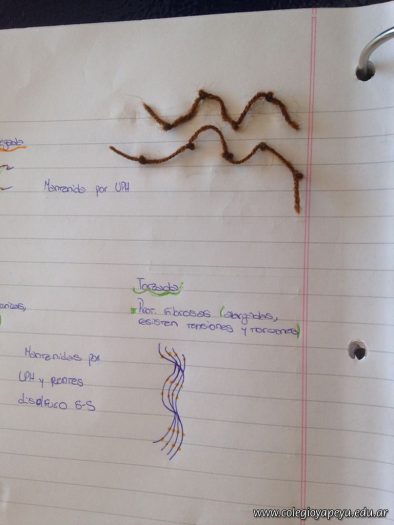 Mantenido por UPH
Torzada:
Prot. fibrosas (alargadas,
resisten tensiones y torciones)
Mantenidas por
UPH y puentes
disulfuro S-S
www.colegioyapeyu.edu.ar